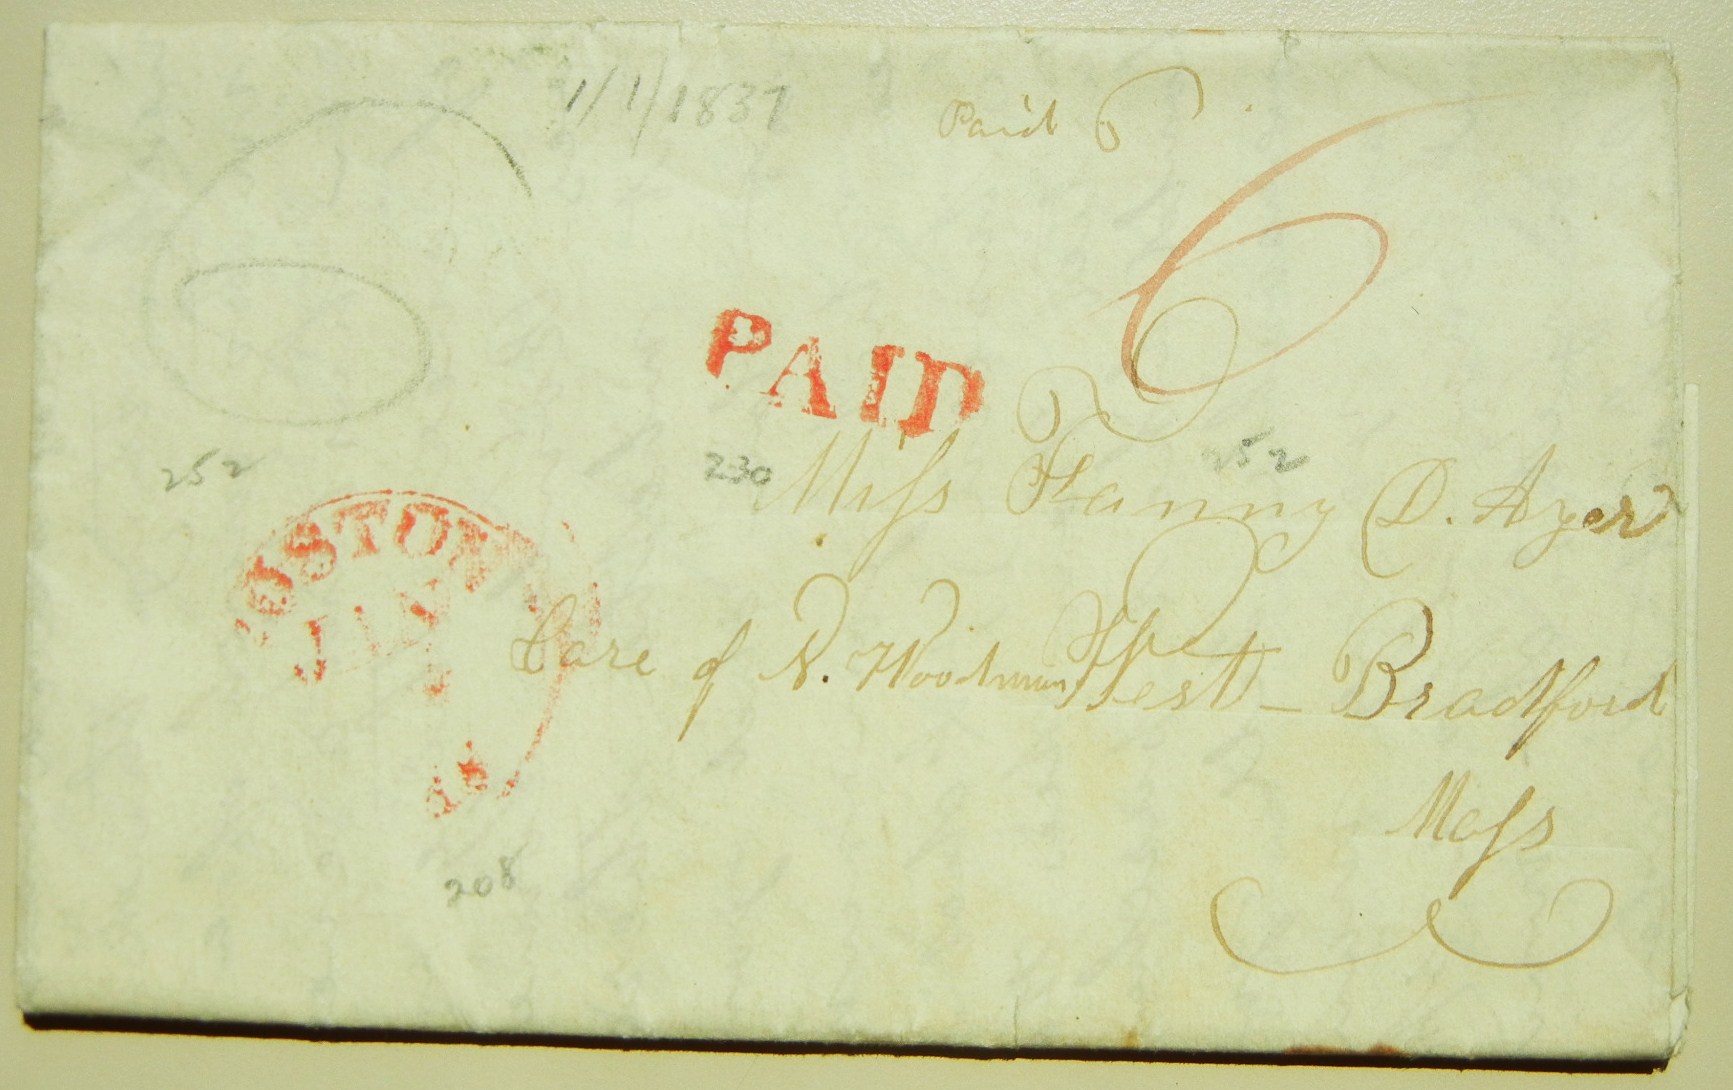 1/1/1837
Paid 6
6
6
PAID
252
230
252
Miss Fanny D. Ayer
BOSTON
JAN
1
Care of N. Woodman West-Bradford
Mass
208